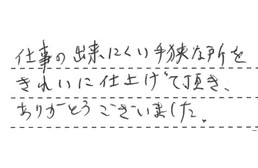 仕事の出来にくい手狭な所を
きれいに仕上げて頂き、
ありがとうございました。